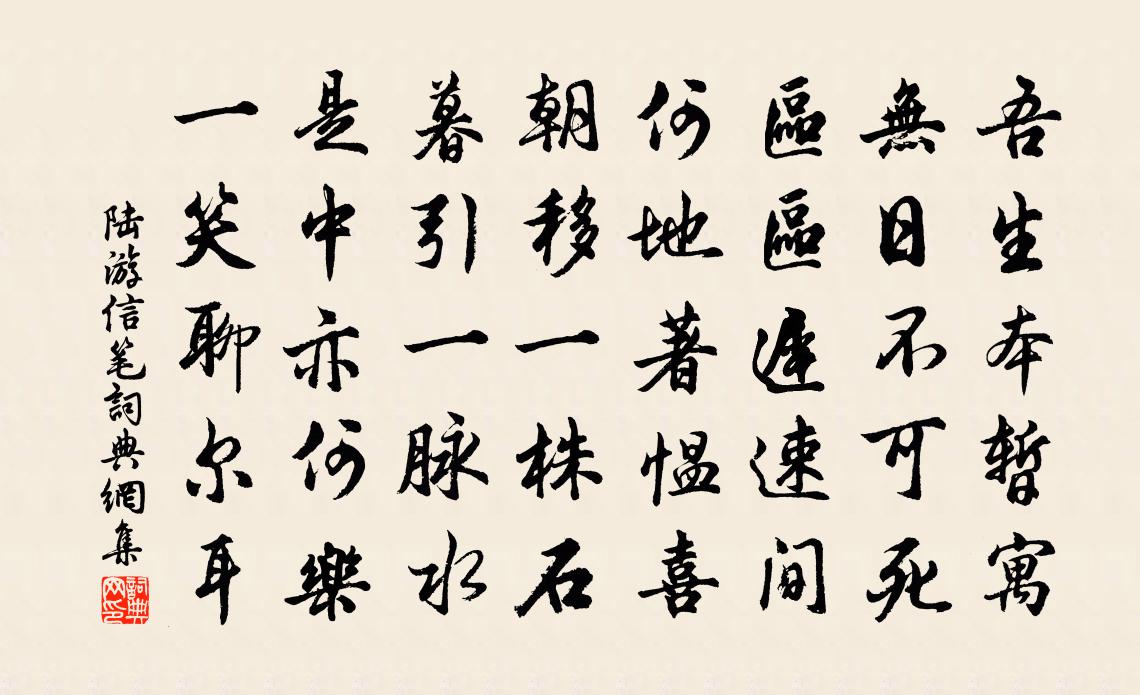 吾生本暫寓
無日不可死
區區遲速間
何地著愠喜
朝移一株石
暮引一脉水
是中亦何樂
一笑聊尔耳
陆游信笔詞典網集
詞典网印